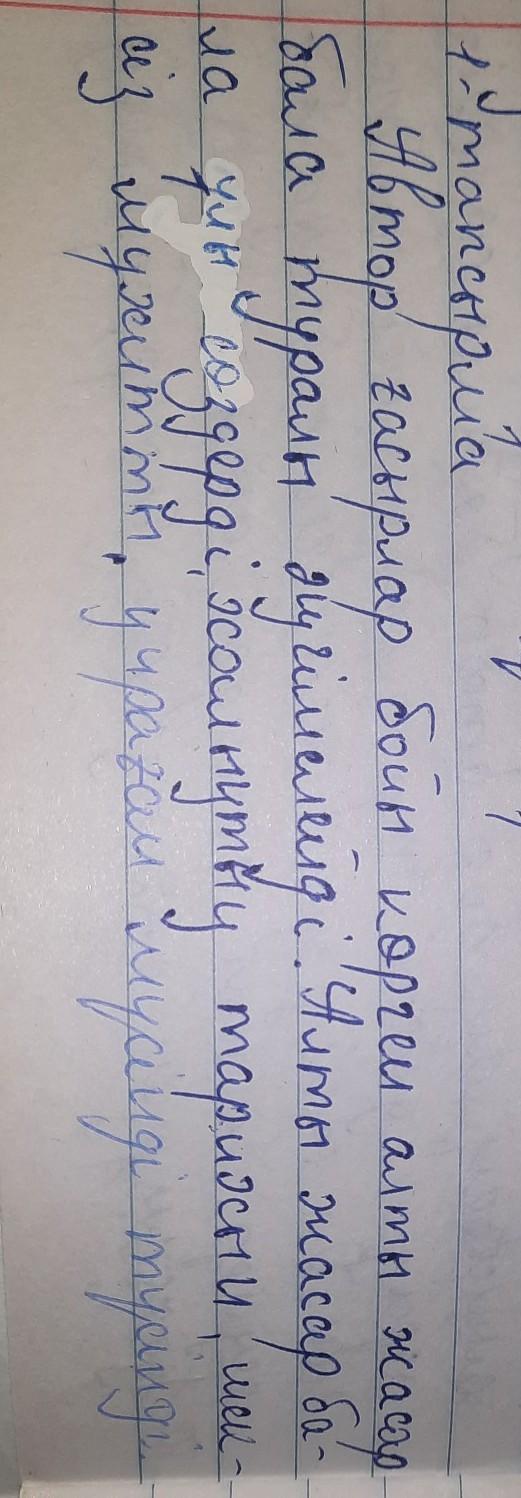 1-тапсырма
Автор ғасырлар бойы көрген алты жасар
бала туралы әңгімелейді. Алты жасар ба-
ла ұлы сөздерді, жалнұтың тарихын, шек-
сіз мұхитты, ұнраған мүсінді түсінді.